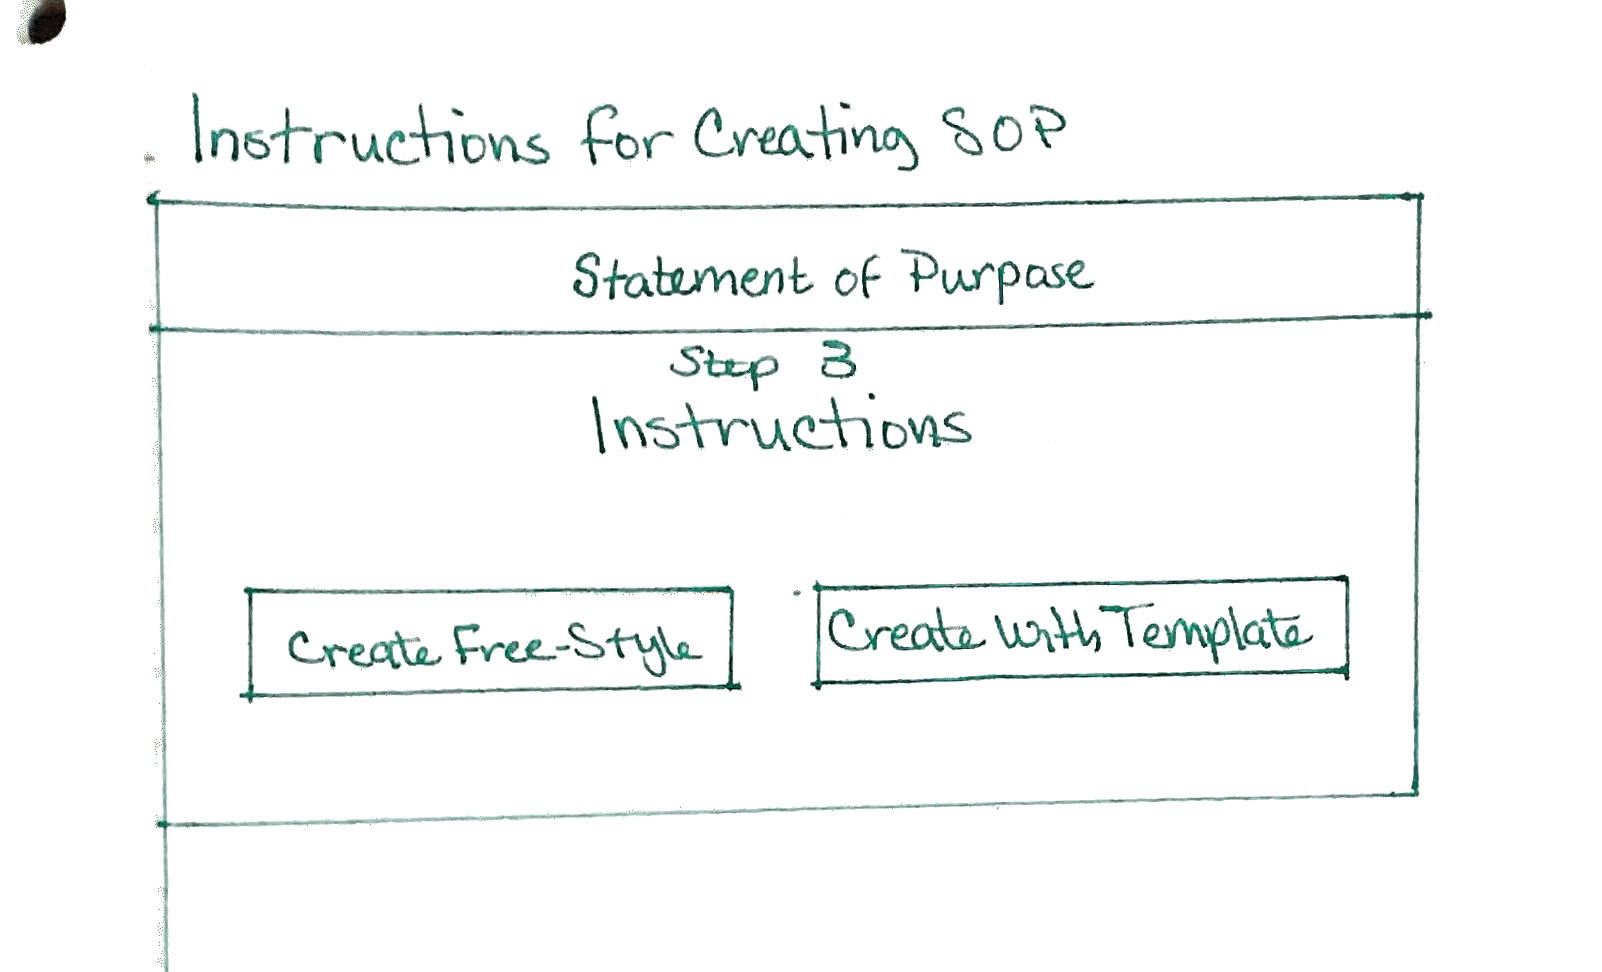 Instructions for Creating SOP
Statement of Purpose
Step 3
Instructions
Create Free-Style
Create With Template